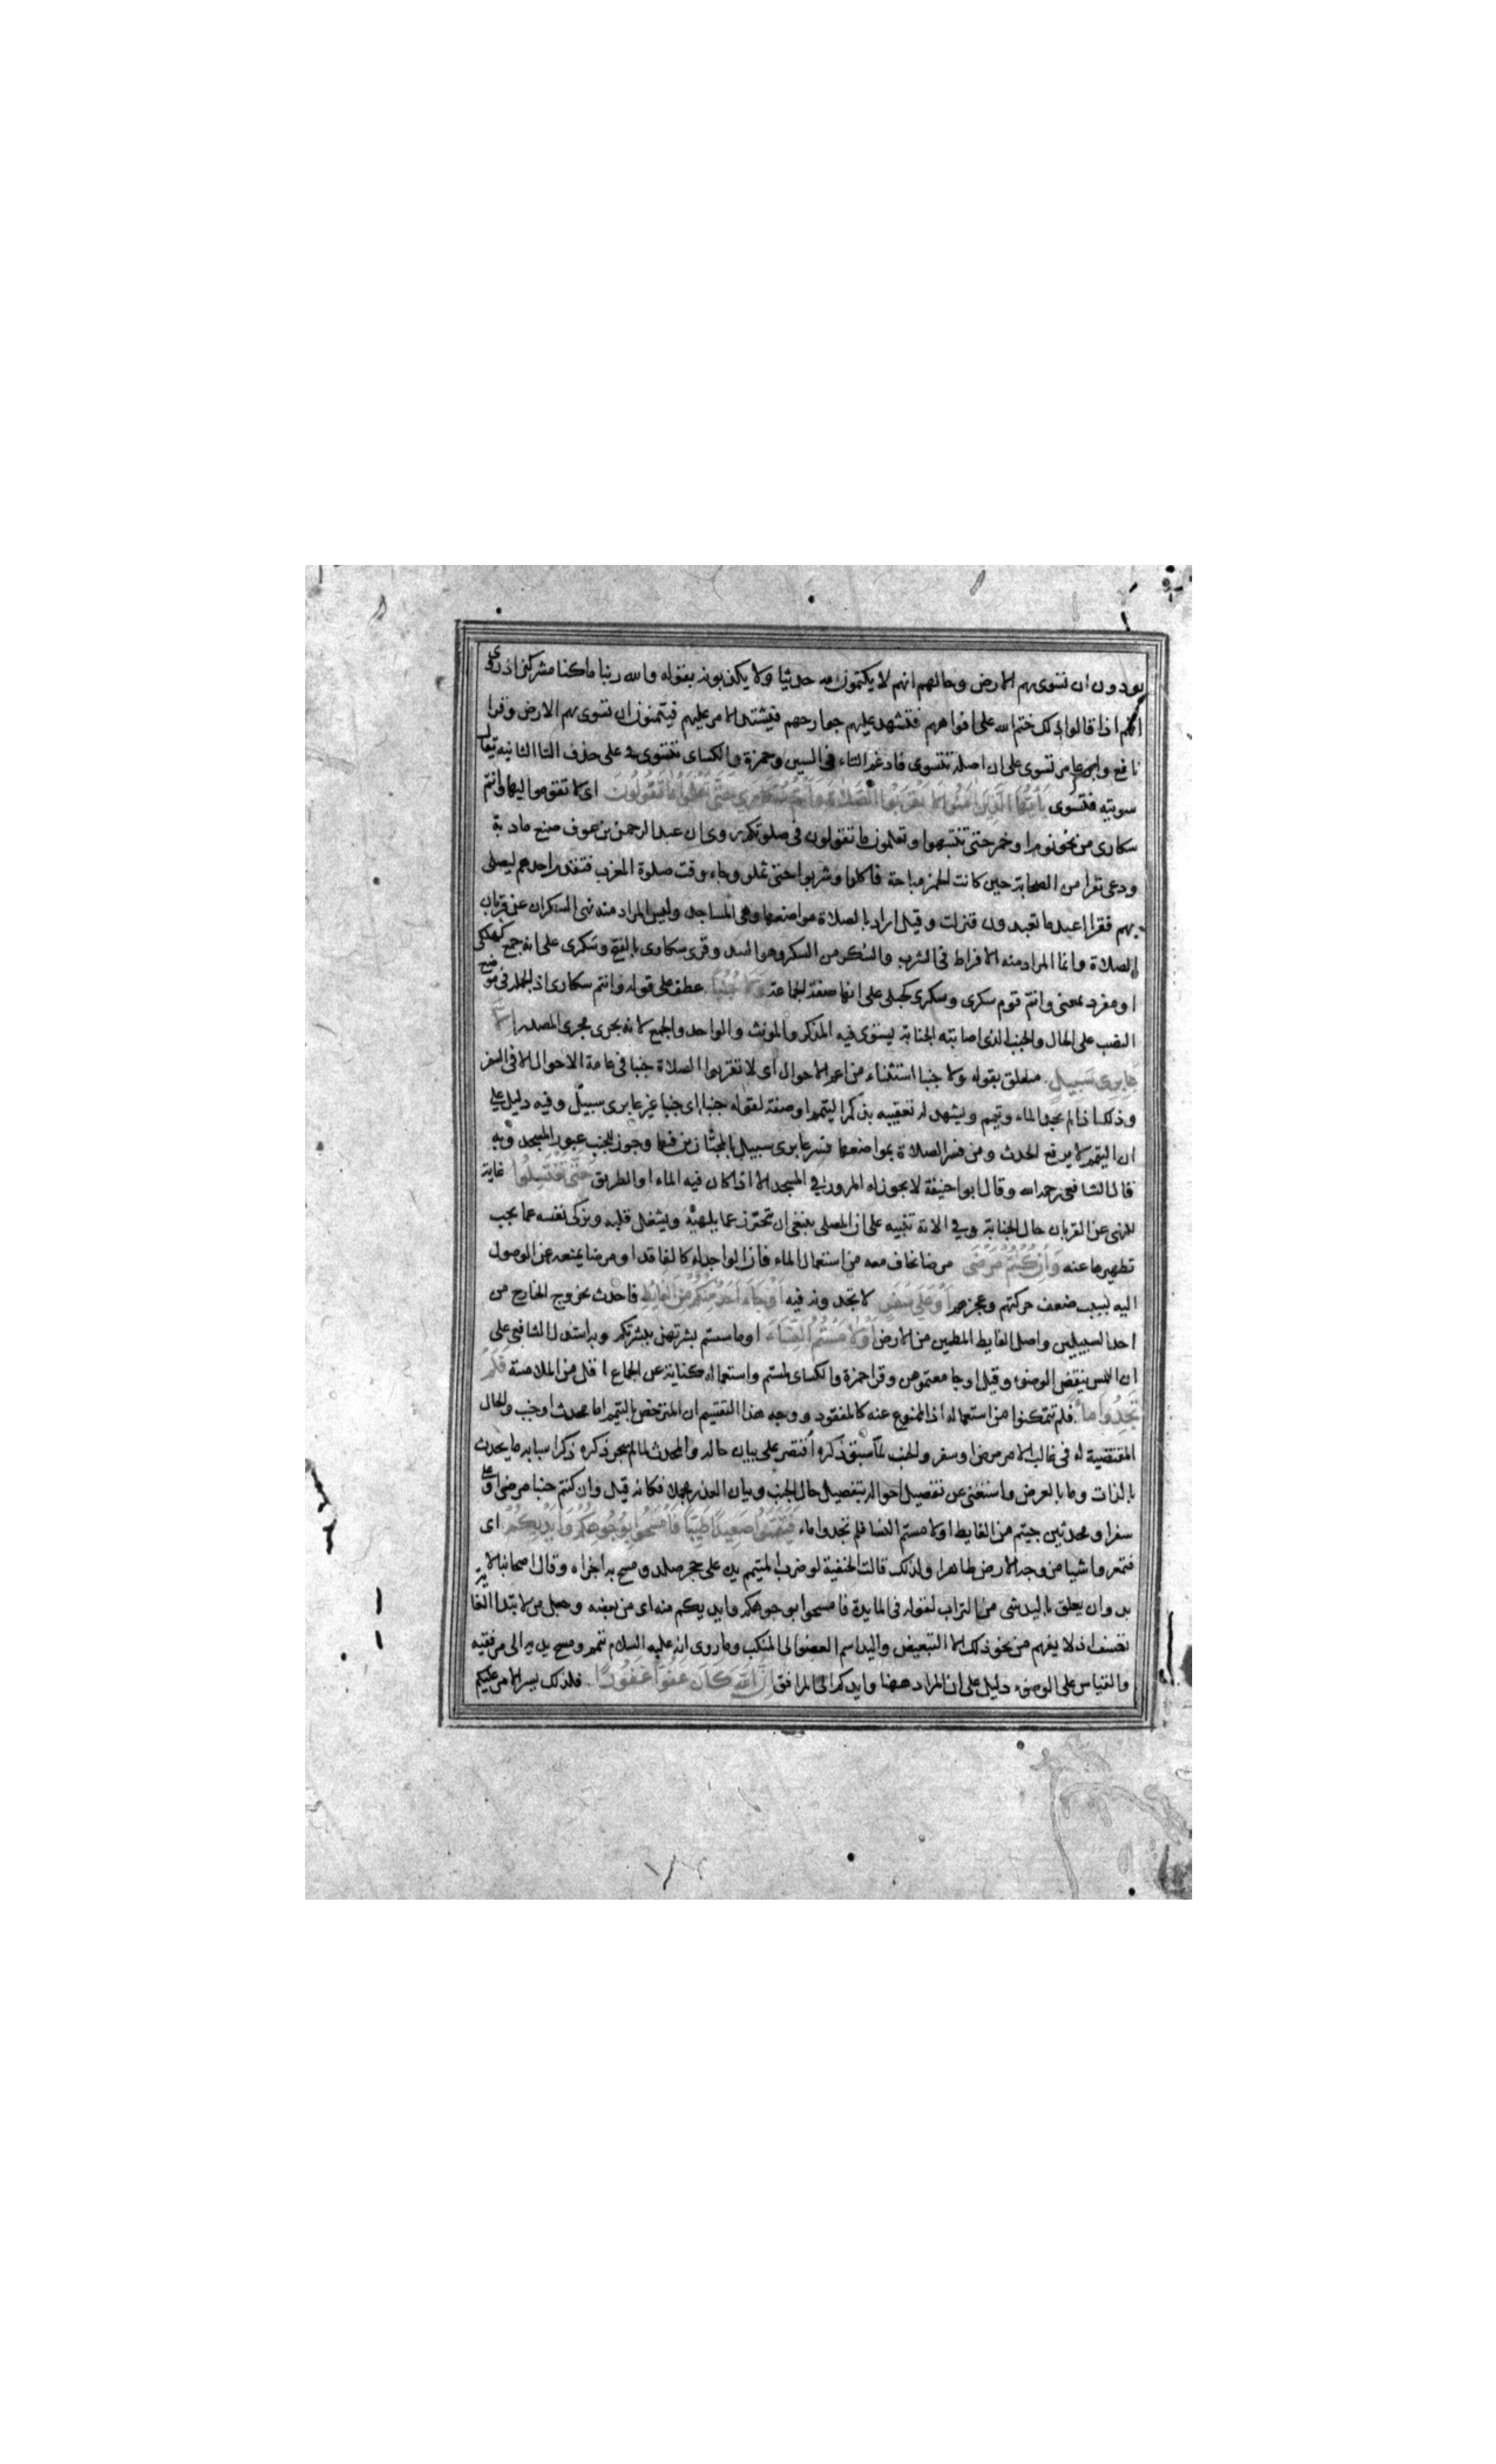 يودون ان تسوى بهم الارض وحالهم انهم لا يكتمون منه حديثا ولا يكذبونه بقوله والله ربنا ماكنا مشركين اذ روى
انهم اذا قالوا ذلك ختم الله على افواههم فتشهد عليهم جوارحهم فيشتد الامر عليهم فيتمنون ان تسوى بهم الارض وقرا
نافع وابن عامر تسوى على ان اصله تتسوى فادغم التاء فى السين وحمزة والكساى تتسوى على حذف التا الثانيه يقال
سويته فتسوى يَاأَيُّهَا الَّذِينَ اٰمَنُوا لَا تَقْرَبُوا الصَّلَاةَ وَأَنْتُمْ سُكَارَى حَتَّى تَعْلَمُوا مَا تَقُولُونَ اى لا تقوموا اليها وانتم
سكارى من نحو نوم او خمر حتى تنتبهوا وتعلمون ما تقولون فى صلوتكم روى ان عبد الرحمن بن عوف صنع مادبة
ودعى نفرا من الصحابة حين كانت الخمر مباحة فاكلوا وشربوا حتى ثملو وجاء وقت صلوة المغرب فتقدم احدهم ليصلى
بهم فقرا اعبد ما تعبدون فنزلت وقيل اراد بالصلاة مواضعها وهى المساجد وليس المراد منه نهى السكران عن قربان
الصلاة وانما المراد منه الافراط فى الشرب والسكر من السكر وهو السد وقرى سكارى بالفتح وسكرى على انه جمع كهلكى
او مفرد بمعنى وانتم قوم سكرى وسكرى كحبلى على انها صفة الجماعة وَلَا جُنُبًا عطف على قوله وانتم سكارى اذ الجملة فى موضع
النصب على الحال والجنب الذى اصابته الجنابة يستوى فيه المذكر والمونث والواحد والجمع لانه يجرى مجرى المصدر اِلَّا
عَابِرِى سَبِيلٍ متعلق بقوله ولا جنبا استثناء من اعم الاحوال اى لا تقربوا الصلاة جنبا فى عامة الاحوال الا فى السفر
وذلك اذا لم يجد الماء وتيمم ويشهد له تعقيبه بذكر التيمم او صفة لقوله جنبا اى جنبا غير عابرى سبيل وفيه دليل على
ان التيمم لا يرفع الحدث ومن فسر الصلاة بمواضعها فسر عابرى سبيل بالمجتازين فيها وجوز للجنب عبور المسجد وبه
قال الشافعى رحمه الله وقال ابو حنيفة لا يجوز له المرور فى المسجد الا اذا كان فيه الماء او الطريق حَتَّى تَغْتَسِلُوا غاية
للنهى عن القربان حال الجنابة وفى الاية تنبيه على ان المصلى ينبغى ان يتحرز عما يلهيه ويشغل قلبه ويزكى نفسه عما يجب
تطهيرها عنه وَاِنْ كُنْتُمْ مَرْضَى مرضا يخاف معه من استعمال الماء فان الواجد له كالفاقد او مرضا يمنعه عن الوصول
اليه بسبب ضعف حركتهم وعجزهم اَوْ عَلَى سَفَرٍ لا تجدونه فيه اَوْ جَاءَ اَحَدٌ مِنْكُمْ مِنَ الْغَائِطِ فاحدث بخروج الخارج من
احد السبيلين واصل الغايط المطمين من الارض اَوْ لَامَسْتُمُ النِّسَاءَ او ماسستم بشرتهن ببشرتكم وبه استدل الشافعى على
ان اللمس ينقض الوضوء وقيل اوجامعتموهن وقرا حمزة والكساى لمستم واستعماله كناية عن الجماع اقل من الملامسة فَلَمْ
تَجِدُوا مَاءً فلم تتمكنوا من استعماله اذ الممنوع عنه كالمفقود ووجه هذا التقسيم ان المترخص بالتيمم اما محدث او جنب والحال
المقتضية له فى غالب الامر مرض او سفر والجنب لما سبق ذكره اقتصر على بيان حاله والمحدث لما لم يجر ذكره ذكر اسبابه ما يحدث
بالذات وما بالعرض واستغنى عن تفصيل احواله بتفصيل حال الجنب وبيان العذر مجملا فكانه قيل وان كنتم جنبا مرضى او على
سفر او محدثين جيتم من الغايط او لامستم النسا فلم تجدوا ماء فَتَيَمَّمُوا صَعِيدًا طَيِّبًا فَامْسَحُوا بِوُجُوهِكُمْ وَاَيْدِيكُمْ اى
فتعمدوا شيا من وجه الارض طاهرا ولذلك قالت الحنفية لو ضرب المتيمم يده على حجر صلد ومسح به اجزاه وقال اصحابنا لا
بد وان يعلق باليد شى من التراب لقوله فى المايدة فامسحوا بوجوهكم وايديكم منه اى من بعضه وجعل من لابتدا الغا
تعسف اذ لا يفهم من نحو ذلك الا التبعيض واليد اسم العضو الى المنكب وما روى انه عليه السلام تيمم ومسح يديه الى مرفقيه
والقياس على الوضوء دليل على ان المراد ههنا وايديكم الى المرافق اِنَّ اللّٰهَ كَانَ عَفُوًّا غَفُورًا فلذلك يسر الامر عليكم